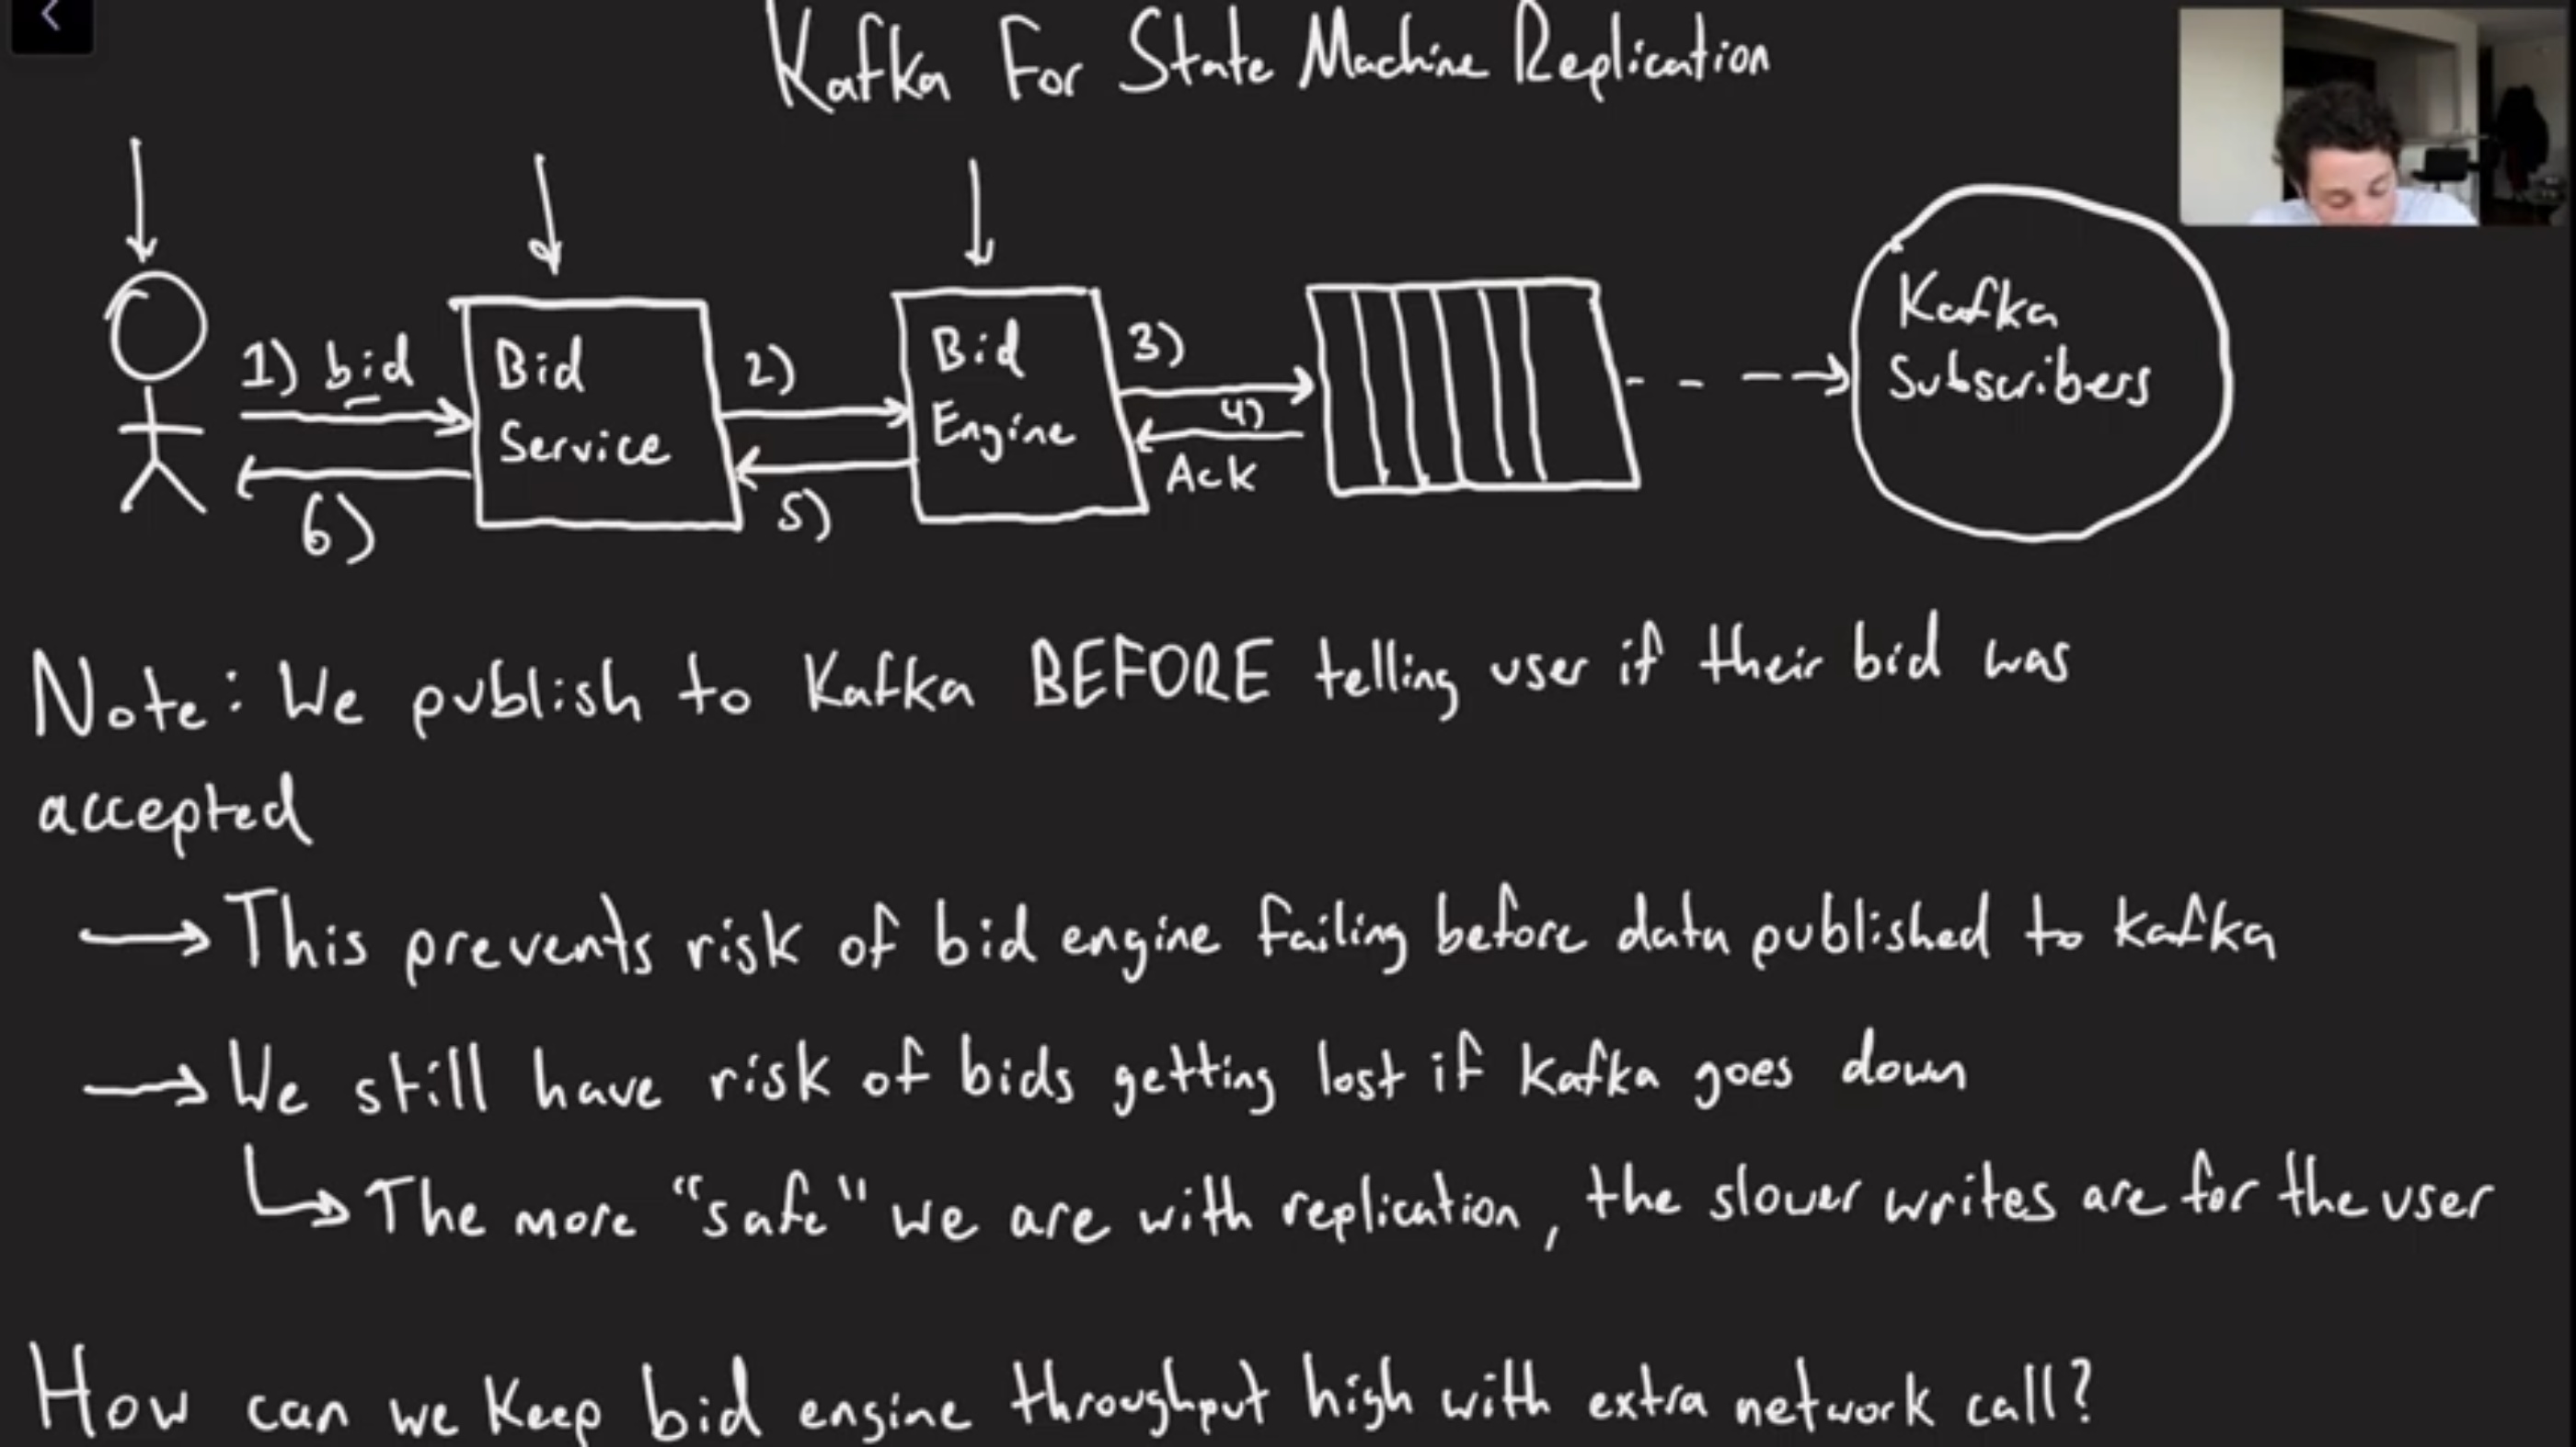 Kafka For State Machine Replication
1) bid
6)
Bid
Service
2)
5)
Bid
Engine
3)
4)
Ack
Kafka
Subscribers
Note: We publish to Kafka BEFORE telling user if their bid was
accepted
→ This prevents risk of bid engine failing before data published to Kafka
→ We still have risk of bids getting lost if Kafka goes down
↳ The more "safe" we are with replication, the slower writes are for the user
How can we keep bid engine throughput high with extra network call?